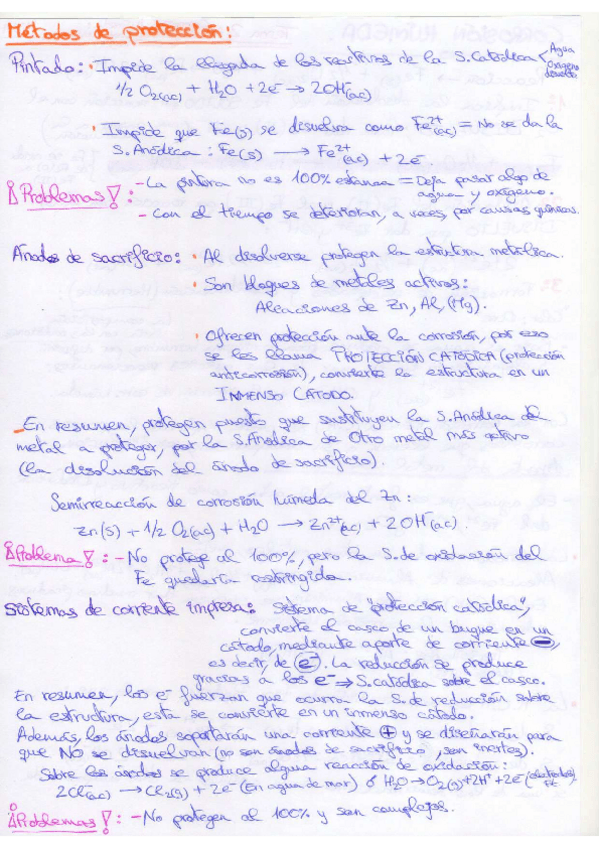 Métodos de protección:
Pintado: · Impide la llegada de los reactivos de la S.Catódica < Agua
Oxígeno disuelto
1/2 O2(ac) + H2O + 2e- → 2OH-(ac)
· Impide que Fe(s) se disuelva como Fe2+(ac) = No se da la
S.Anódica : Fe(s) → Fe2+(ac) + 2e-.
¡Problemas!: - La pintura no es 100% estanca = Deja pasar algo de
agua y oxígeno.
- Con el tiempo se deterioran, a veces, por causas químicas.
Ánodos de sacrificio: · Al disolverse protegen la estructura metálica.
· Son bloques de metales activos:
Aleaciones de Zn, Al, (Mg).
· Ofrecen protección ante la corrosión, por eso
se les llama PROTECCIÓN CATÓDICA (protección
anticorrosión), convierte la estructura en un
INMENSO CÁTODO.
En resumen, protegen puesto que sustituyen la S.Anódica del
metal a proteger, por la S.Anódica de Otro metal más activo
(la disolución del ánodo de sacrificio).
Semirreacción de corrosión húmeda del Zn:
Zn(s) + 1/2 O2(ac) + H2O → Zn2+(ac) + 2OH-(ac).
¡Problema!: - No protege al 100%, pero la S. de oxidación del
Fe quedaría restringida.
Sistemas de corriente impresa: Sistema de "protección catódica",
convierte el casco de un buque en un
cátodo, mediante aporte de corriente ⊖,
es decir, de e-. La reducción se produce
gracias a los e- → S.catódica sobre el casco.
En resumen, los e- fuerzan que ocurra la S. de reducción sobre
la estructura, esta se convierte en un inmenso cátodo.
Además, los ánodos soportarán una corriente ⊕ y se diseñarán para
que NO se disuelvan (no son ánodos de sacrificio, son inertes).
Sobre los ánodos se produce alguna reacción de oxidación:
2Cl-(ac) → Cl2(g) + 2e- (en agua de mar) ó H2O → O2(g) + 2H+ + 2e-
¡Problemas!: - No protegen al 100% y son complejos.